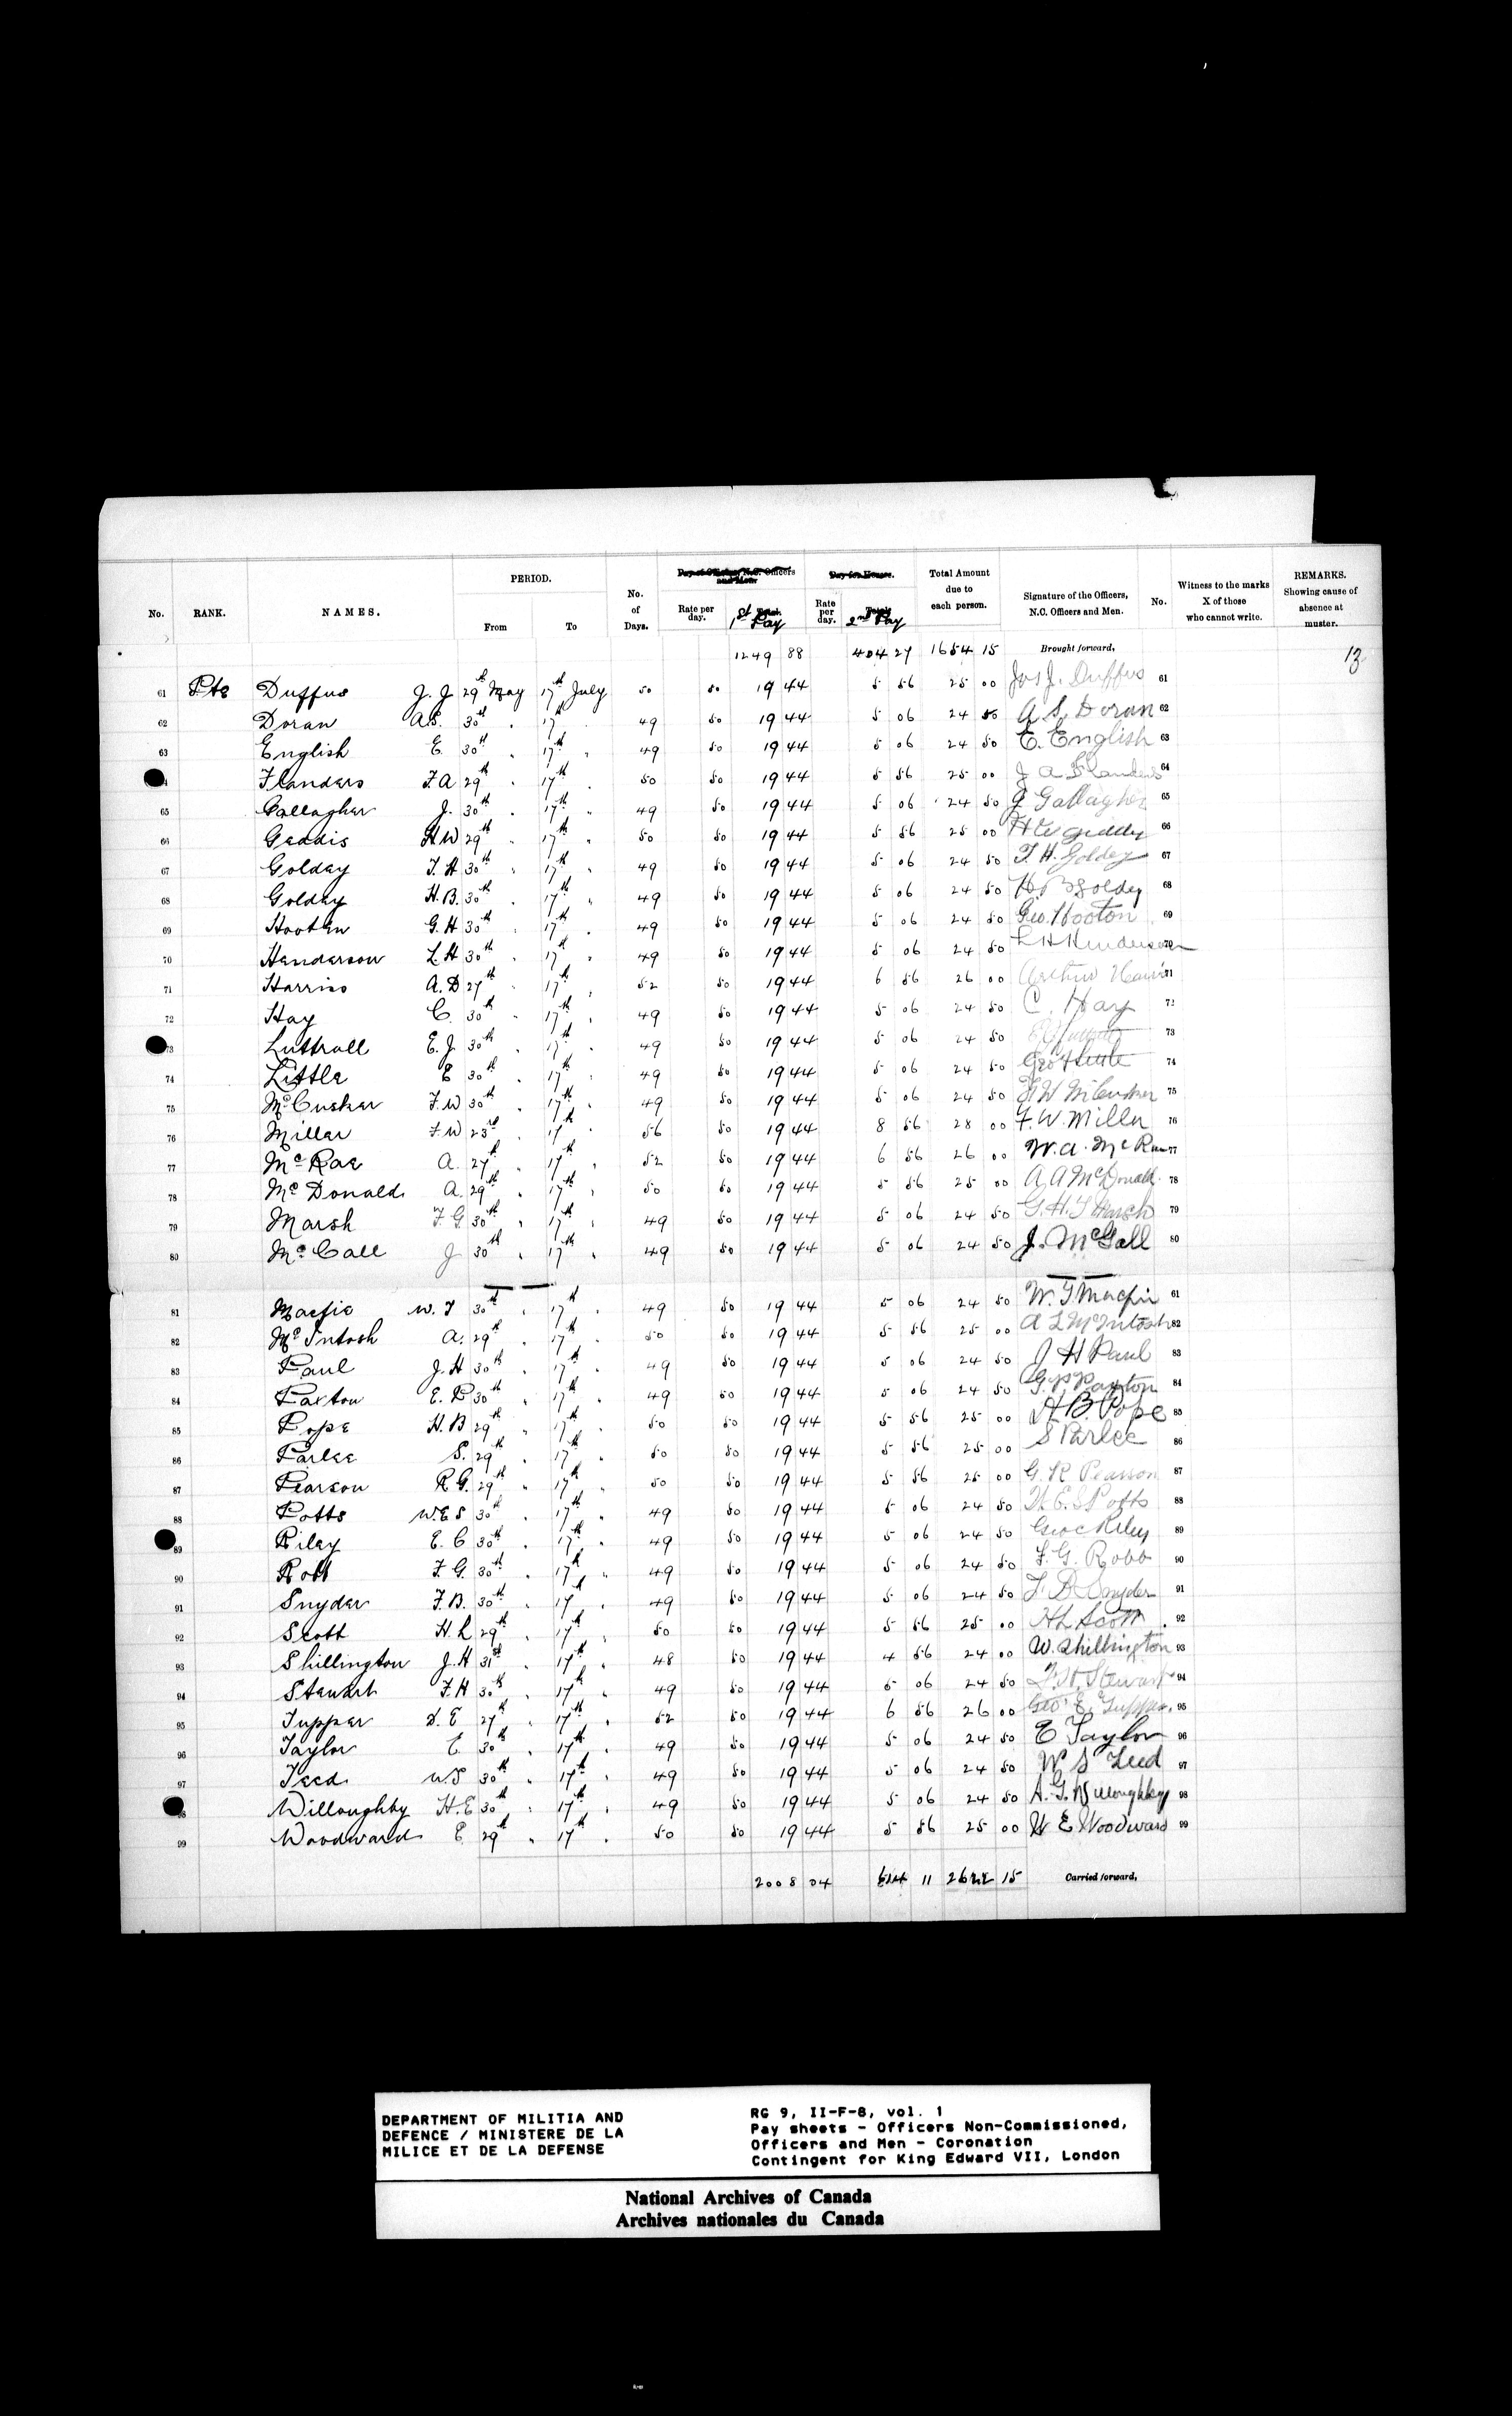 PERIOD.
Pay of Officers, N.C. Officers and Men.
Pay for Horses.
Total Amount due to each person.
No. RANK. NAMES. From To No. of Days. Rate per day. 1st Pay Rate per day. 2nd Pay Signature of the Officers, N.C. Officers and Men. No. Witness to the marks X of those who cannot write. REMARKS. Showing cause of absence at muster.
1249 88 404 27 1654 15 Brought forward, 13
61 Pte Duffus J. J 29th May 17th July 50 50 19 44 5 56 25 00 Jos J. Duffus 61
62 Doran A.S. 30th " 17th 49 50 19 44 5 06 24 50 A S. Doran 62
63 English E. 30th " 17th " 49 50 19 44 5 06 24 50 E. English 63
Flanders F. A 29th " 17th " 50 50 19 44 5 56 25 00 J A Flanders 64
65 Gallagher J. 30th " 17th " 49 50 19 44 5 06 24 50 J Gallagher 65
66 Geddis H W 29th " 17th " 50 50 19 44 5 56 25 00 H W Giddy 66
67 Golday T. H 30th " 17th " 49 50 19 44 5 06 24 50 T. H. Goldey 67
68 Golday H. B. 30th " 17th " 49 50 19 44 5 06 24 50 H. B Goldey 68
69 Hooten G. H 30th " 17th " 49 50 19 44 5 06 24 50 Geo. Hooton 69
70 Henderson L. H 30th " 17th " 49 50 19 44 5 06 24 50 L H Henderson
71 Harriss A. D 27th " 17th " 52 50 19 44 6 56 26 00 Arthur Harris 71
72 Hay C. 30th " 17th " 49 50 19 44 5 06 24 50 C. Hay 72
73 Luttrall E. J. 30th " 17th " 49 50 19 44 5 06 24 50 73
74 Little E 30th " 17th " 49 50 19 44 5 06 24 50 Geo Little 74
75 McCusker F. W 30th " 17th " 49 50 19 44 5 06 24 50 F. W McCusker 75
76 Miller F. W 23rd " 17th " 56 50 19 44 8 56 28 00 F. W. Miller 76
77 McRae A. 27th " 17th " 52 50 19 44 6 56 26 00 W. A. McRae 77
78 McDonald A. 29th " 17th " 50 50 19 44 5 56 25 00 A A McDonald 78
79 Marsh F. G. 30th " 17th " 49 50 19 44 5 06 24 50 G. H. T Marsh 79
80 McCall J 30th " 17th " 49 50 19 44 5 06 24 50 J. McCall 80
81 Macfie W. T 30th " 17th " 49 50 19 44 5 06 24 50 W. T. Macfie 81
82 McIntosh A. 29th " 17th " 50 50 19 44 5 56 25 00 A L McIntosh 82
83 Paul J. H 30th " 17th " 49 50 19 44 5 06 24 50 J H Paul 83
84 Paxton E. P 30th " 17th " 49 50 19 44 5 06 24 50 Paxton 84
85 Pope H. B 29th " 17th " 50 50 19 44 5 56 25 00 H B Pope 85
86 Parlee S. 29th " 17th " 50 50 19 44 5 56 25 00 S Parlee 86
87 Pearson R G. 29th " 17th " 50 50 19 44 5 56 25 00 G. R Pearson 87
88 Potts W. E S 30th " 17th " 49 50 19 44 5 06 24 50 W. E. S Potts 88
89 Riley E. C 30th " 17th " 49 50 19 44 5 06 24 50 Geo C Riley 89
90 Robb F. G. 30th " 17th " 49 50 19 44 5 06 24 50 F. G. Robb 90
91 Snyder F. B. 30th " 17th " 49 50 19 44 5 06 24 50 F B Snyder 91
92 Scott H. L 29th " 17th " 50 50 19 44 5 56 25 00 H L Scott 92
93 Shillington J. H 31st " 17th " 48 50 19 44 4 56 24 00 W. Shillington 93
94 Stewart F. H 30th " 17th " 49 50 19 44 5 06 24 50 F. H. Stewart 94
95 Tupper D. E 27th " 17th " 52 50 19 44 6 56 26 00 Geo E. Tupper. 95
96 Taylor E. 30th " 17th " 49 50 19 44 5 06 24 50 E Taylor 96
97 Teed W S 30th " 17th " 49 50 19 44 5 06 24 50 W S Teed 97
98 Willoughby H. E 30th " 17th " 49 50 19 44 5 06 24 50 A. G. Willoughby 98
99 Woodward E 29th " 17th " 50 50 19 44 5 56 25 00 W E Woodward 99
2008 04 614 11 2622 15 Carried forward,
DEPARTMENT OF MILITIA AND
DEFENCE / MINISTERE DE LA
MILICE ET DE LA DEFENSE
RG 9, II-F-8, vol. 1
Pay sheets - Officers Non-Commissioned,
Officers and Men - Coronation
Contingent for King Edward VII, London
National Archives of Canada
Archives nationales du Canada